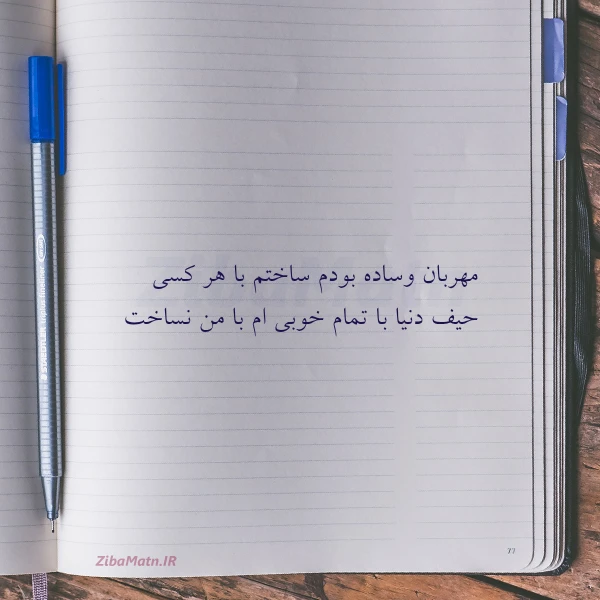 مهربان وساده بودم ساختم با هر کسی
حیف دنیا با تمام خوبی ام با من نساخت
77
ZibaMatn.IR